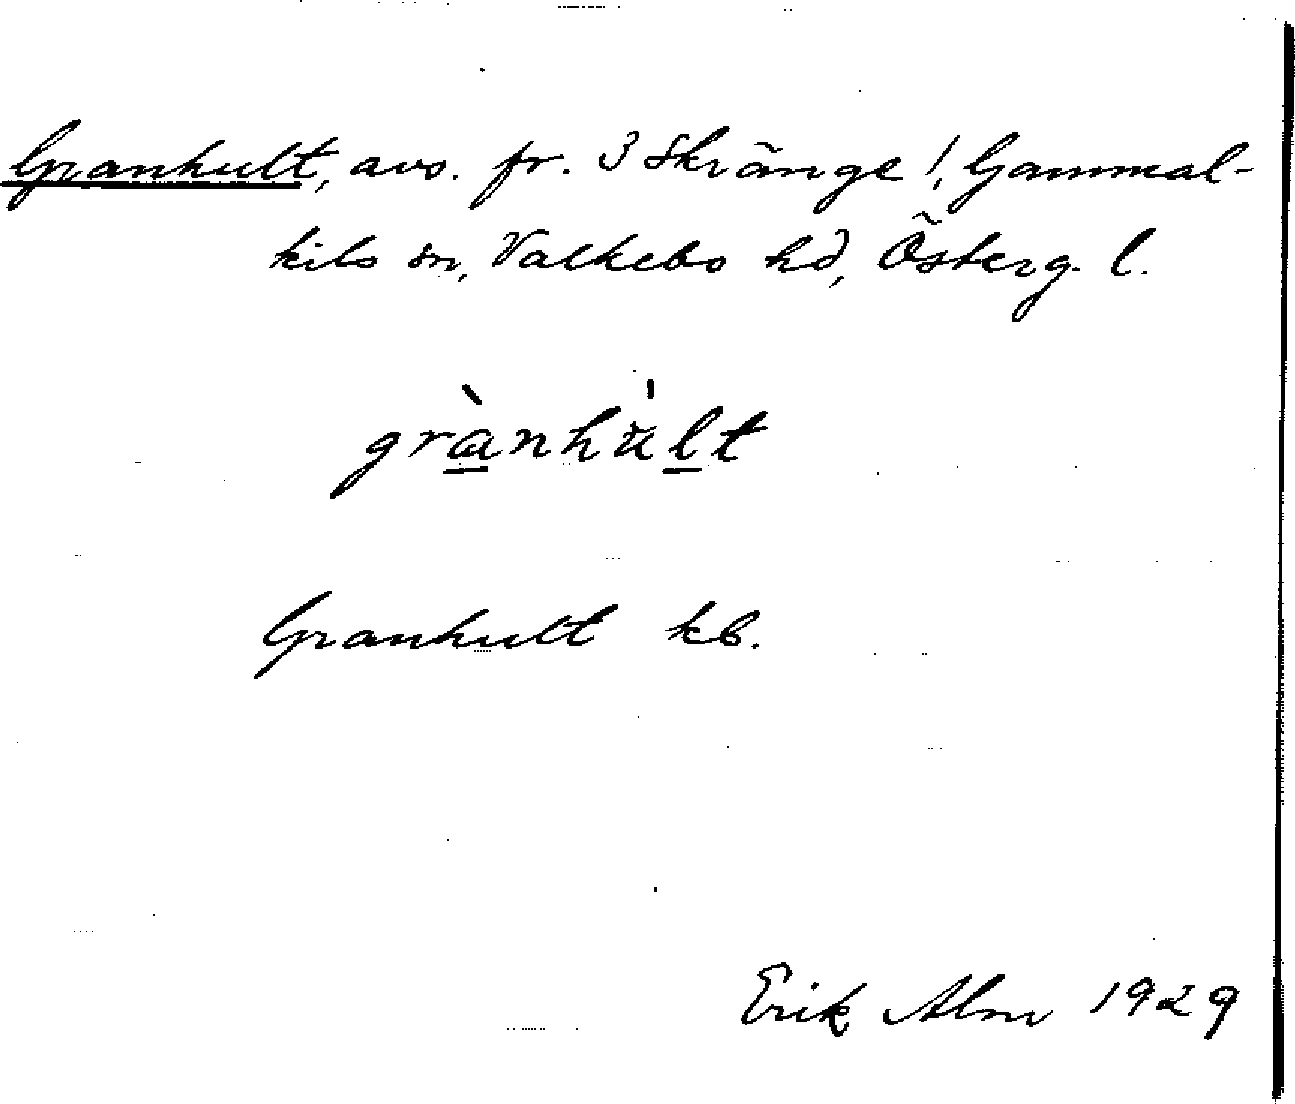 Granhult, avs. fr. 3 Skränge !, Gammal-
kils sn, Valkebo hd, Österg. l.
grànhùlt
Granhult kb.
Erik Alm 1929